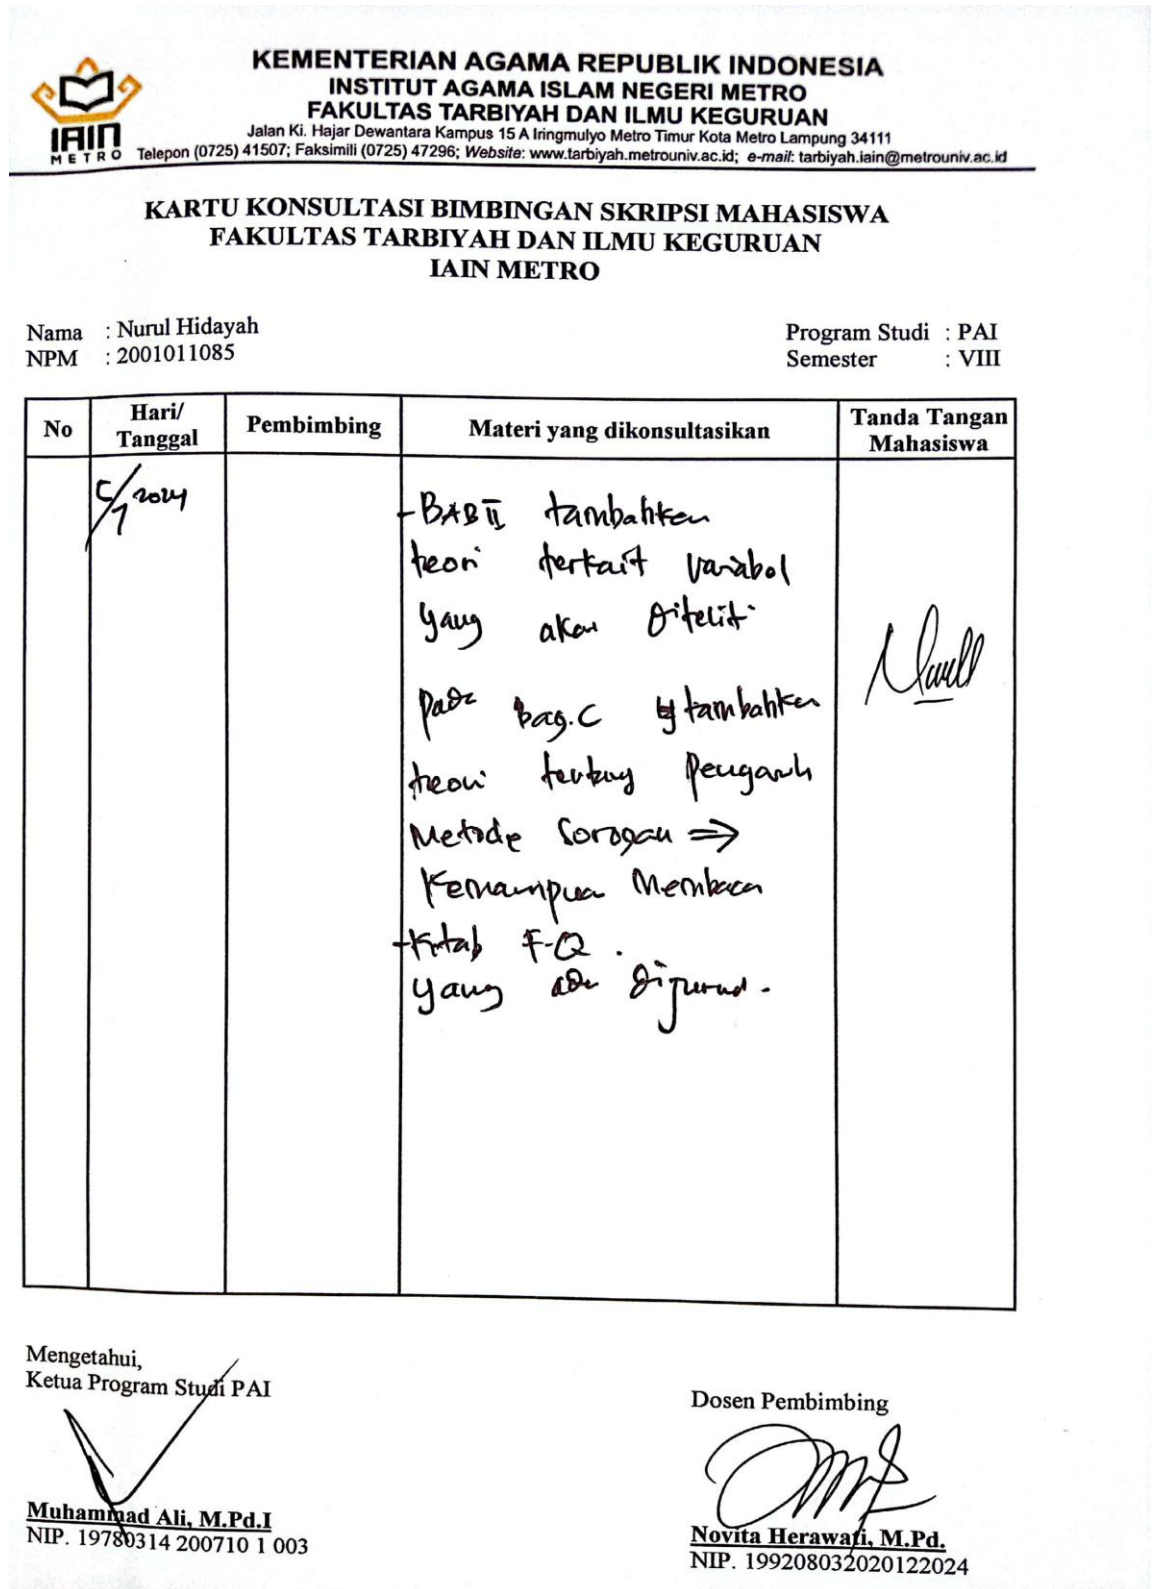 KEMENTERIAN AGAMA REPUBLIK INDONESIA
INSTITUT AGAMA ISLAM NEGERI METRO
FAKULTAS TARBIYAH DAN ILMU KEGURUAN
Jalan Ki. Hajar Dewantara Kampus 15 A Iringmulyo Metro Timur Kota Metro Lampung 34111
Telepon (0725) 41507; Faksimili (0725) 47296; Website: www.tarbiyah.metrouniv.ac.id; e-mail: tarbiyah.iain@metrouniv.ac.id
IAIN
METRO
KARTU KONSULTASI BIMBINGAN SKRIPSI MAHASISWA
FAKULTAS TARBIYAH DAN ILMU KEGURUAN
IAIN METRO
Nama : Nurul Hidayah
NPM : 2001011085
Program Studi : PAI
Semester : VIII
No
Hari/
Tanggal
Pembimbing
Materi yang dikonsultasikan
Tanda Tangan
Mahasiswa
2024
- BAB II tambahkan
teori terkait variabel
yang akan diteliti
pada bag. C tambahkan
teori tentang pengaruh
Metode Sorogan ⇒
Kemampuan Membaca
Kitab F-Q.
yang ada dijurnal.
Mengetahui,
Ketua Program Studi PAI
Muhammad Ali, M.Pd.I
NIP. 19780314 200710 1 003
Dosen Pembimbing
Novita Herawati, M.Pd.
NIP. 199208032020122024